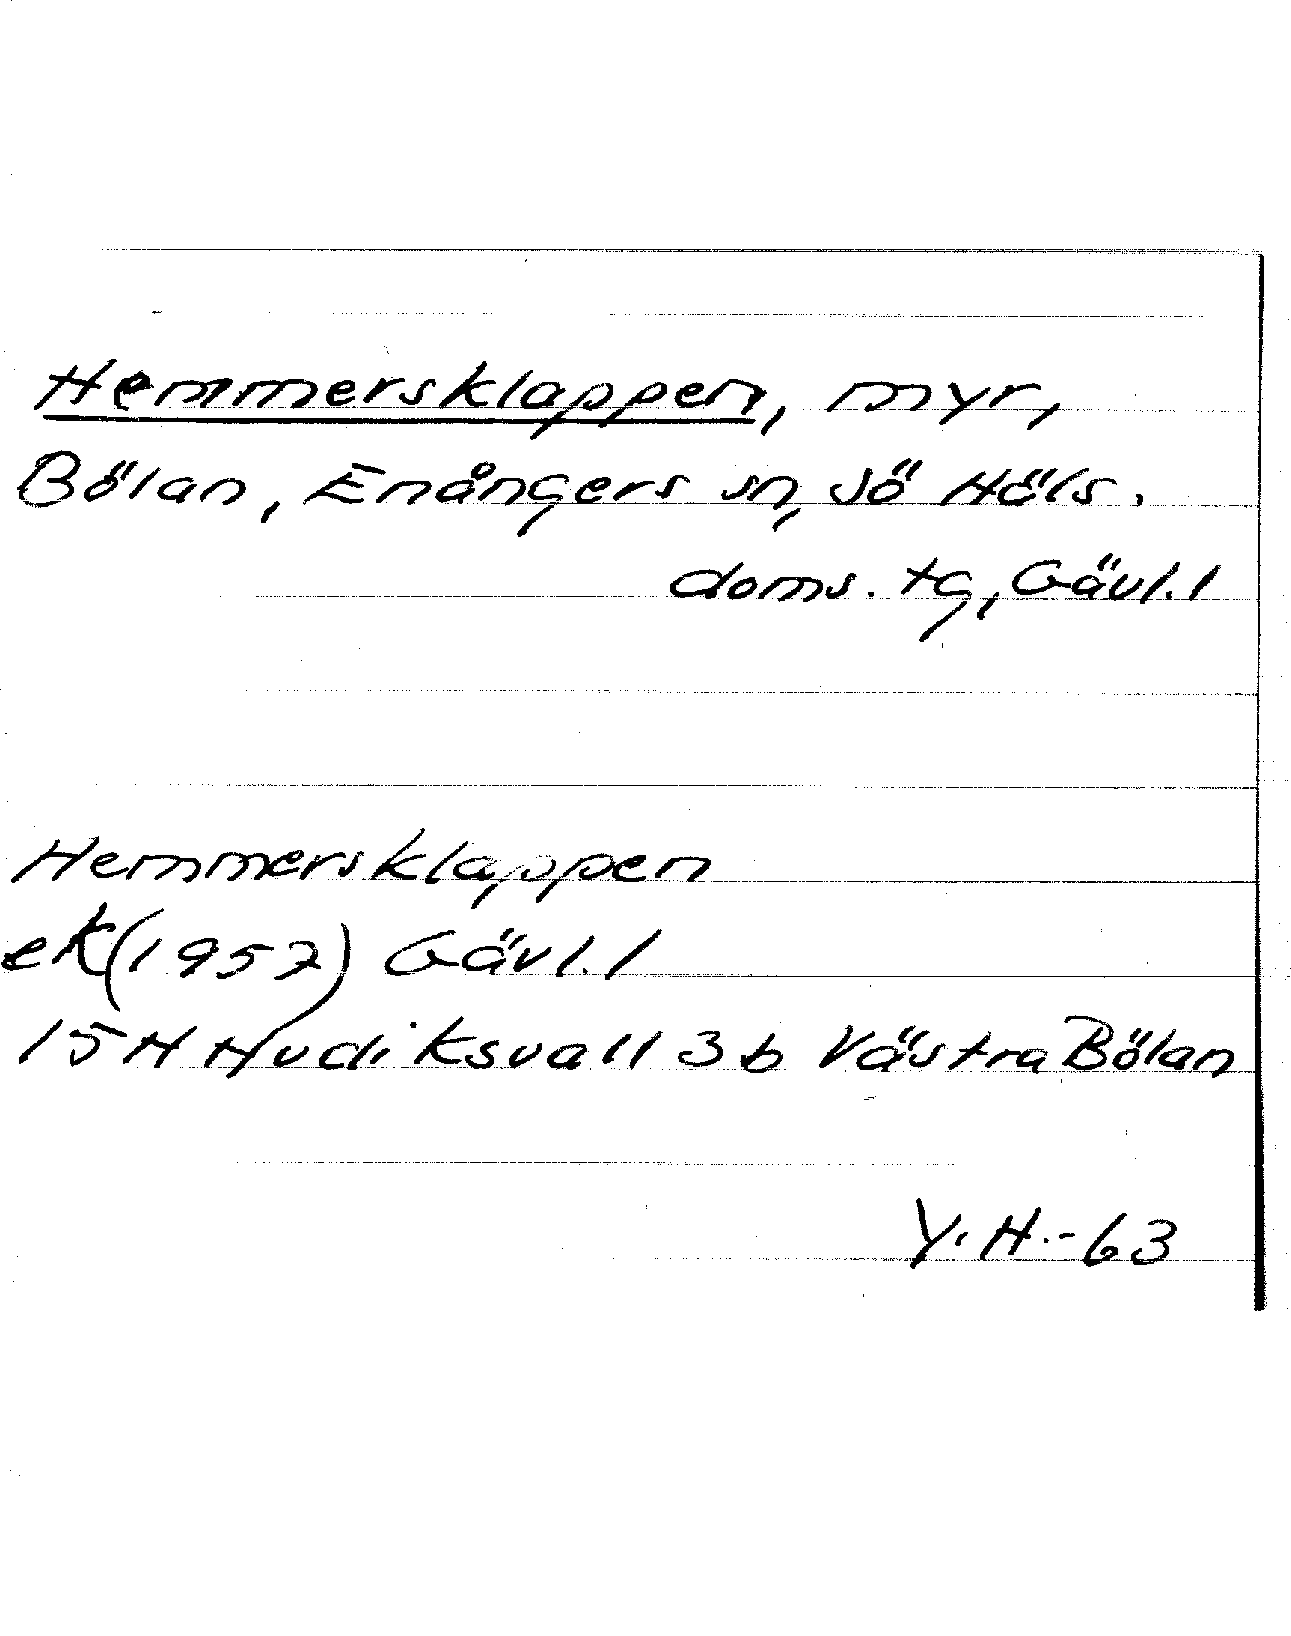 Hemmersklappen, myr,
Bölan, Enångers sn, Sö Häls.
doms. tg, Gävl. l
Hemmersklappen
ek (1957) Gävl. l
15H Hudiksvall 3b Västra Bölan
Y. H. -63